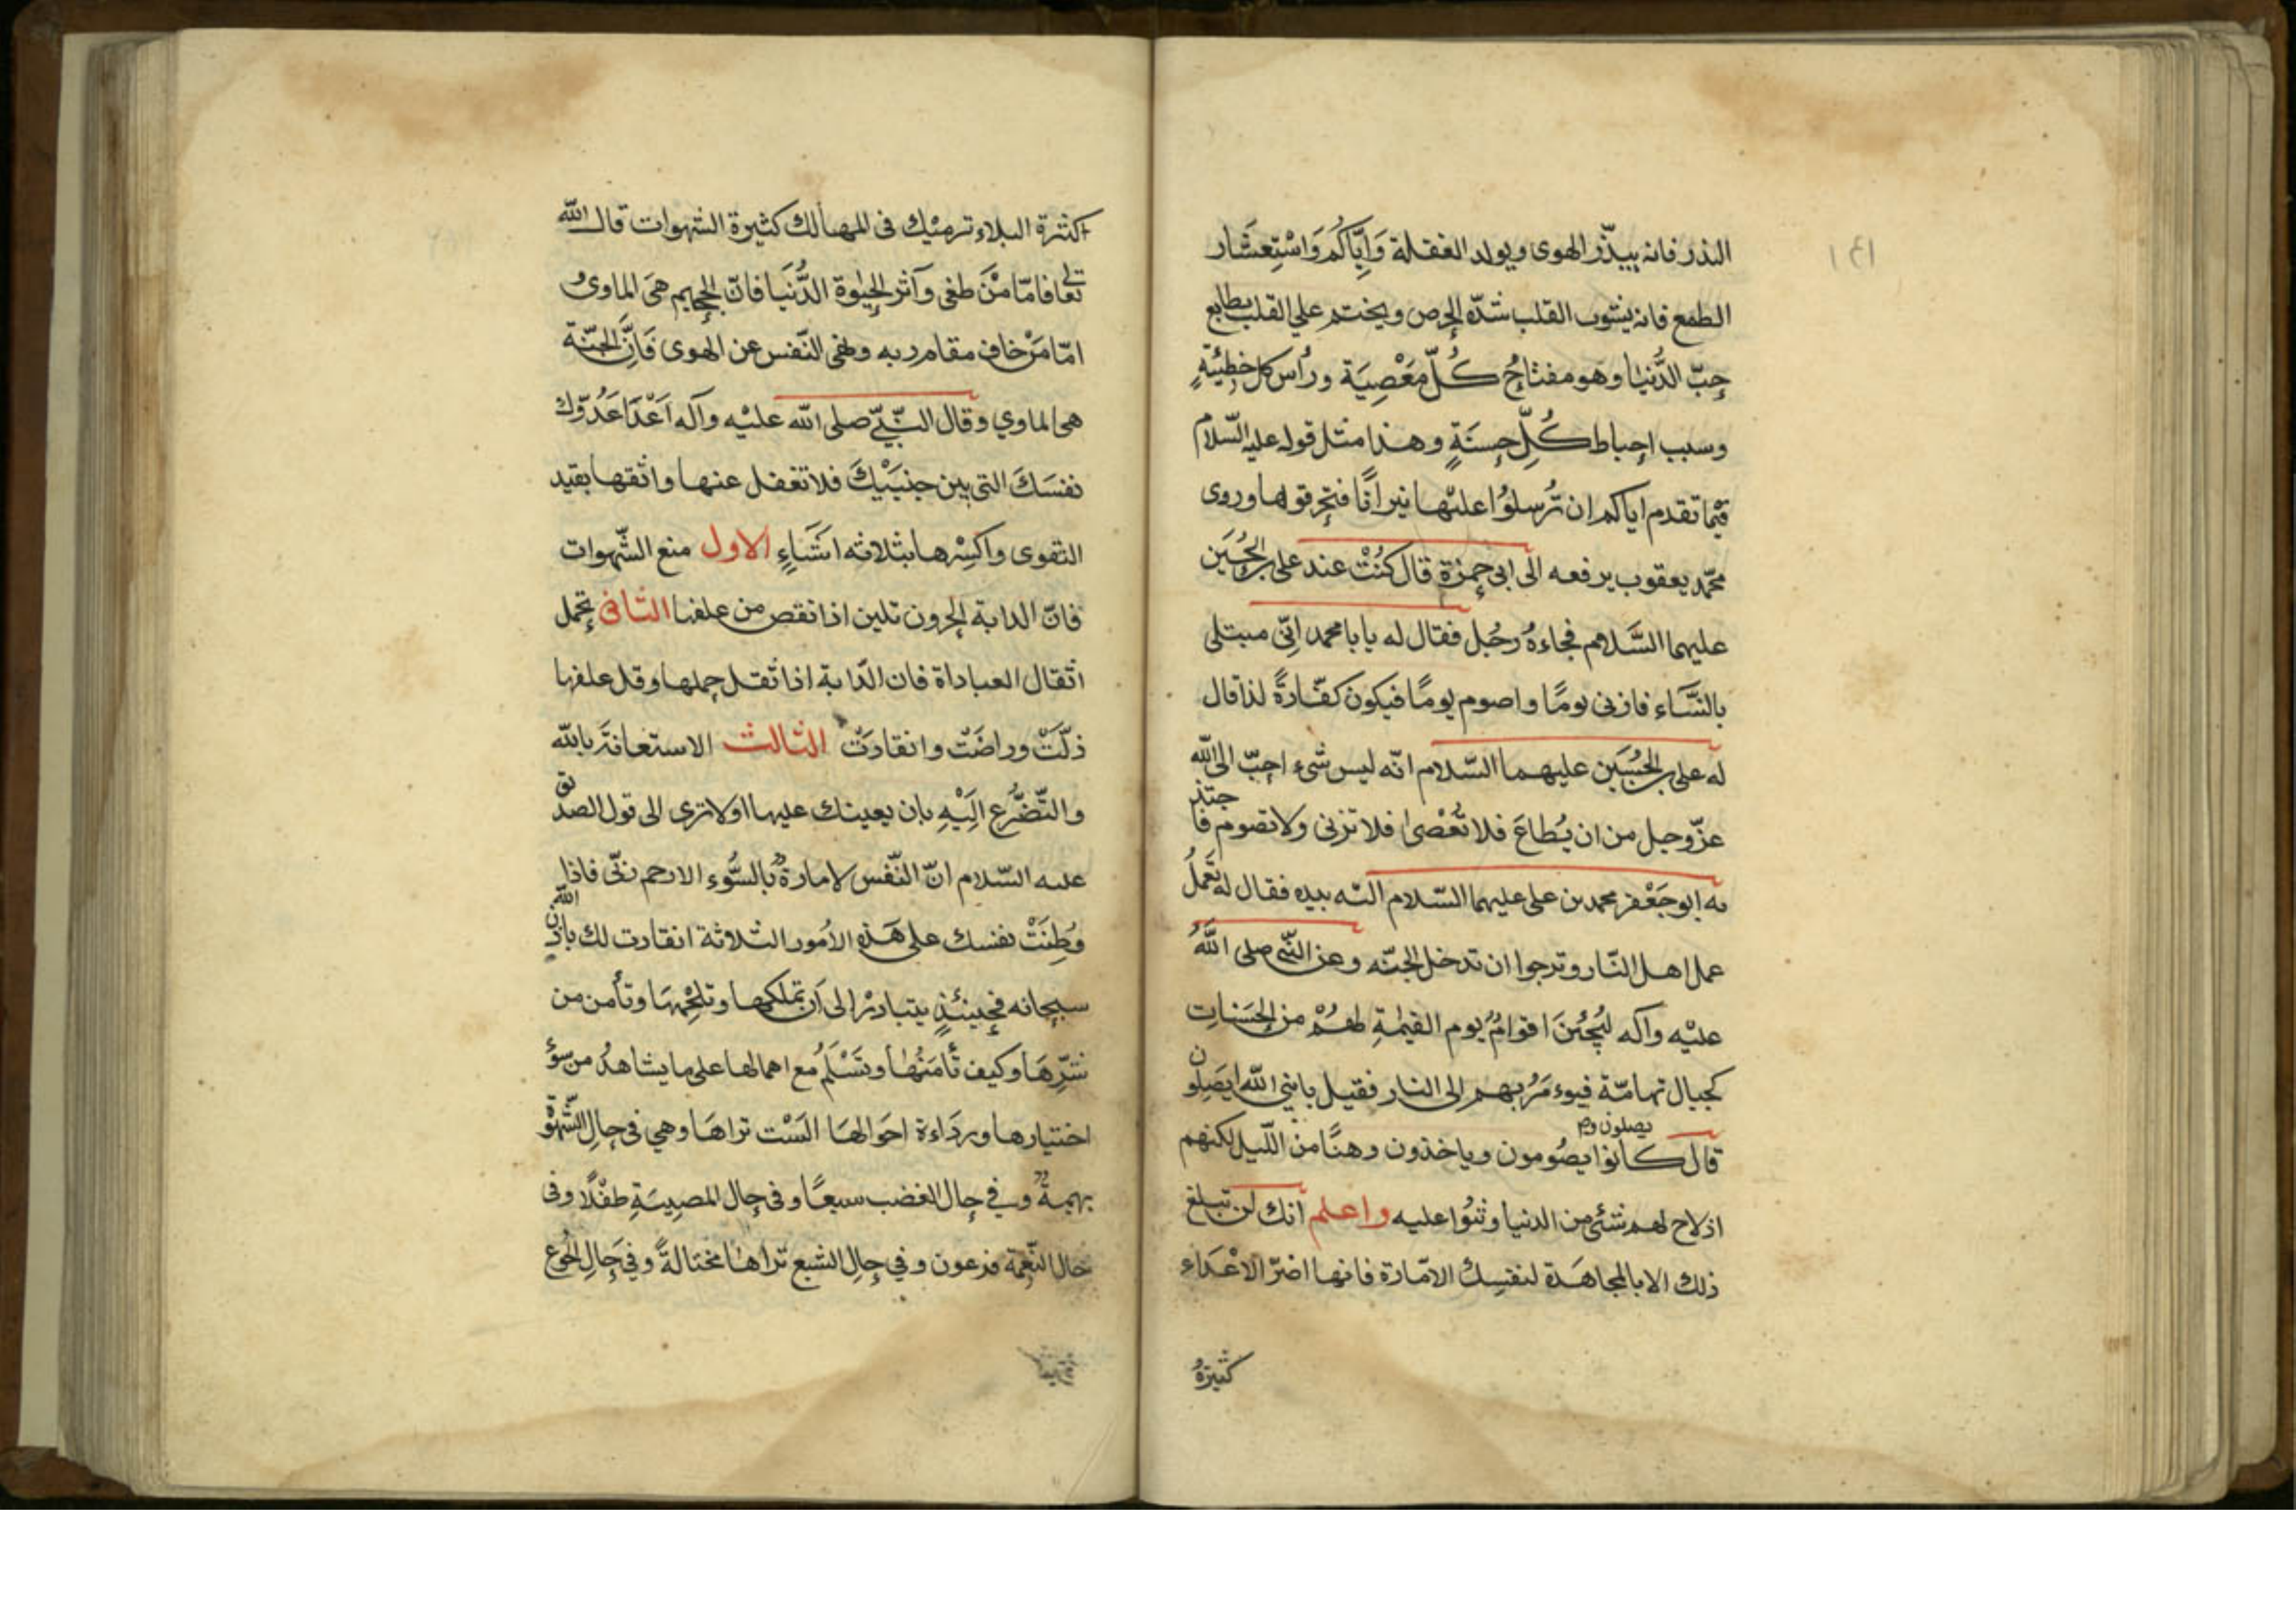 البذر فانه يبذّر الهوى ويولد الغفلة وَاِيَّاكُم وَاسْتِعشَار
الطمع فانه يشوب القلب شدّة الحرص ويختم علي القلب بطابع
حِبّ الدُّنيا وهو مفتاحُ كُلّ مَعْصِيَة ورأس كل خطِيْئَةٍ
وسبب احباط كُلِّ حسنَةٍ وهذا مثل قوله عليه السّلام
فيما تقدم اياكم ان تُرسِلوُا عليْها نيرانًا فتحرقوها وروى
محمّد يعقوب يرفعه الى ابي حمزة قال كنُنْتُ عند علي بن الحُسَين
عليهما السَّلام فجاءهُ رجُل فقال له يا با محمد اِنّى مبتلى
بالنّسَاء فازنى يومًا واصوم يومًا فيكون كفّارةً لذا قال
له على بن الحُسَين عليهما السّلام انّه ليس شىء احبّ الى الله
عزّوجل من ان يُطاعَ فلا تُعْصىٰ فلا تزنى ولا تصوم فا جتذ
به ابو جَعْفر محمد بن على عليهما السّلام اليه بيده فقال له تَعمَلُ
عمل اهل النّار وترجوا ان تدخل الجنّه وعن النّبى صلى اللهُ
عليْه وآله ليُجئنَ اقوامُ يوم القيٰمةِ لهُمْ من الحَسَناتِ
كجبال تهامّة فيوءمَرُ بهم الى النار فقيل يا نبى الله ايصَلون
قال كانوا يصُومون وياخذون وهنًا من اللّيل لكنهم
يصلون و
اذ لاح لهم شئ من الدنيا وثبُوا عليه واعلم انك لن تبلغ
ذلك الا بالمجاهَدة لنفسِك الامّارة فانها اضرّ الاعْدَاء
كثيرةُ
كثرة البلاء ترميْك فى المهالك كثيرة الشهوات قال الله
تعالى فامّا مَنْ طغى وآثر الحيٰوة الدُّنيَا فانّ الجحيم هىَ الماوىُ
امّا مَنْ خاف مقام ربه ونهى النّفس عن الهوى فَاِنَّ الجنّة
هى الماوي وقال النّبيّ صلى الله عليْه وآله اَعْدَا عَدُوّك
نفسَكَ التى بين جنبَيْكَ فلا تغفل عنها واثقها بقيد
التقوى واكسِرْها بثلاثه اشَيَاءٍ الاول منع الشّهوات
فانّ الدابة الحرون تلين اذا نقص من علفها الثانى تحمل
اثقال العباداة فان الدّابة اذا ثقل حملها وقل علفها
ذلّتَْ وراضَتْ وانقادَتْ الثالث الاستعانةَ بالله
والتّضَرُّع اليْهِ بان يعينك عليها اولا ترى الى قول الصدّيق
عليه السّلام انّ النّفس لامارةٌ بالسُّوءِ الا رحم ربّى فاذا
وُطِنَتْ نفسك على هَذهِ الأمُور الثلاثة انقادت لك باذن الله
سبحانه فحينئذٍ يتبادرْ الى اَن تملكها وتلجْمهَا وتأمن من
شرِّهَا وكيف تأمَنُها وتَسْلَمُ مع اهمالها على ما يشاهدُ من سؤ
اختيارها وردَاءة احوَالهَا الَسْت تراهَا وهي فى حالِ الشّهْوَة
بهيمةٌ وفي حال الغضب سبعًا وفى حال المصِيبَةِ طفْلًا وفى
حال النّعِمْة فرعون وفي حالِ الشبع تراهَا مختالةً وفي حَالِ الجوع